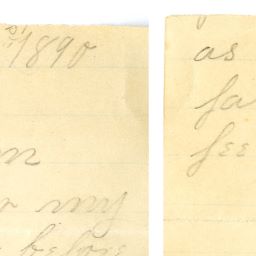 1890
n
my
before
as
fa
fee